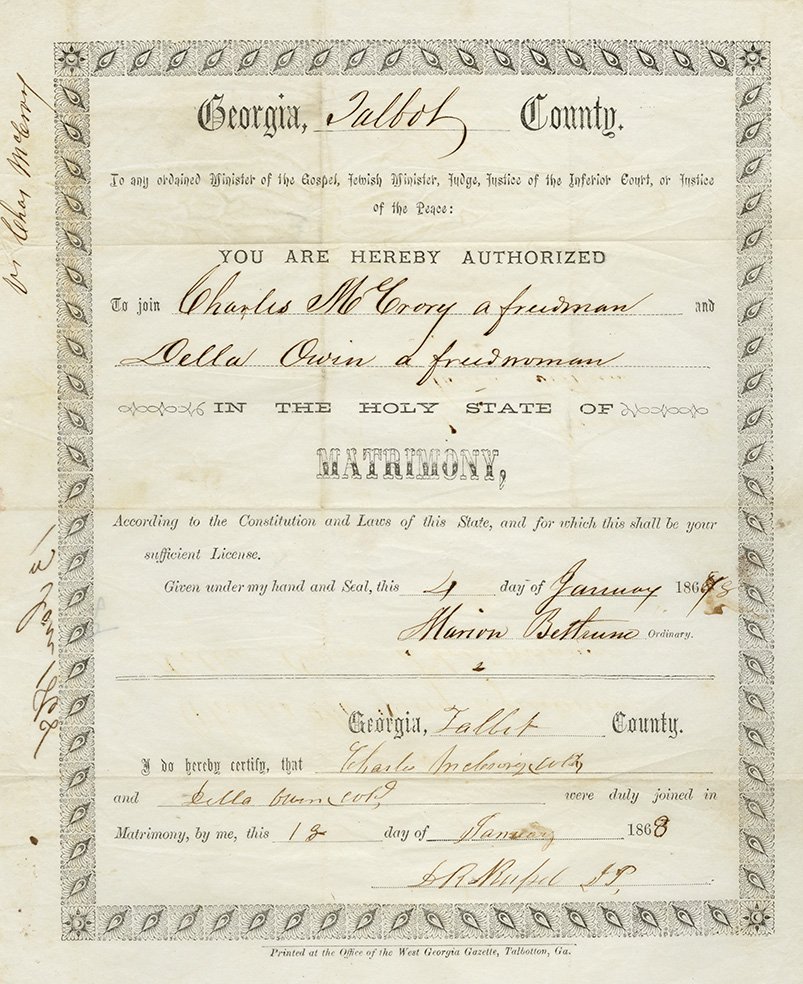 Georgia, Talbot County.
To any ordained Minister of the Gospel, Jewish Minister, Judge, Justice of the Inferior Court, or Justice
of the Peace:
YOU ARE HEREBY AUTHORIZED
To join Charles McCrory a freedman and
Della Owin a freedwoman
IN THE HOLY STATE OF
MATRIMONY,
According to the Constitution and Laws of this State, and for which this shall be your
sufficient License.
Given under my hand and Seal, this 4 day of January 1868
Marion Bethune Ordinary.
Georgia, Talbot County.
I do hereby certify, that Charles McCrory, cold,
and Della Owen, cold, were duly joined in
Matrimony, by me, this 12 day of January 1868
J.P.
Printed at the Office of the West Georgia Gazette, Talbotton, Ga.
Chas McCrory